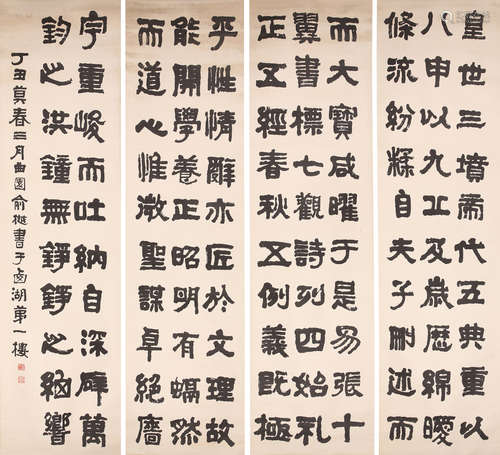 皇世三墳帝代五典重以
八申以九丘及歲歷綿曖
條流紛糅自夫子刪述而
而大寶咸曜于是易張十
翼書標七觀詩列四始礼
正五經春秋五例義既極
乎性情辭亦匠於文理故
能開學養正昭明有融然
而道心惟微聖謀卓絕牆
宇重峻而吐納自深譬萬
鈞之洪鐘無錚錚之細響
丁丑莫春三月曲園俞樾書于西湖第一樓